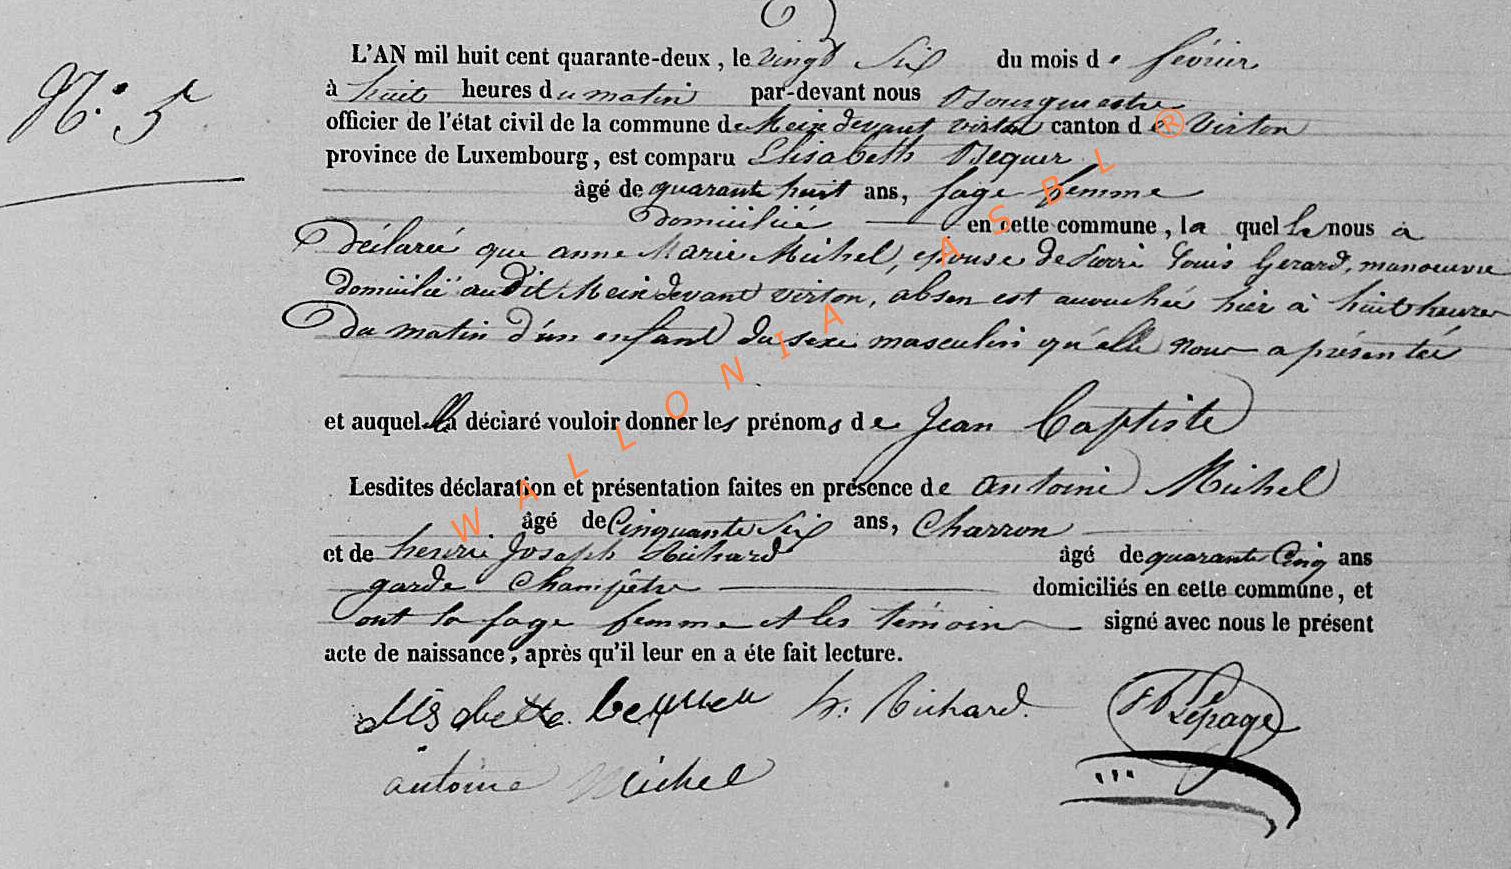 N.° 5
L'AN mil huit cent quarante-deux, le vingt six du mois de février
à huit heures du matin par-devant nous Bourgmestre
officier de l'état civil de la commune de Meix devant virton canton de Virton
province de Luxembourg, est comparu Elisabeth Bequer
âgé de quarante huit ans, sage femme
domiciliée en cette commune, la quelle nous a
déclareé que anne Marie Michel, epouse de Louis Gerard, manoeuvre
domicilié audit Meix devant virton, absen est accouchée hier à huit heures
du matin d'un enfant du sexe masculin qu'elle nous a présentée
et auquel elle a déclaré vouloir donner les prénoms de Jean Baptiste
Lesdites déclaration et présentation faites en présence de Antoine Michel
âgé de Cinquante Six ans, Charron
et de henri Joseph Richard âgé de quarante Cinq ans
garde Champêtre domiciliés en cette commune, et
ont la sage femme et les témoins signé avec nous le présent
acte de naissance, après qu'il leur en a éte fait lecture.
h: Richard. Lepage
antoine Michel
WALLONIA ASBL ®